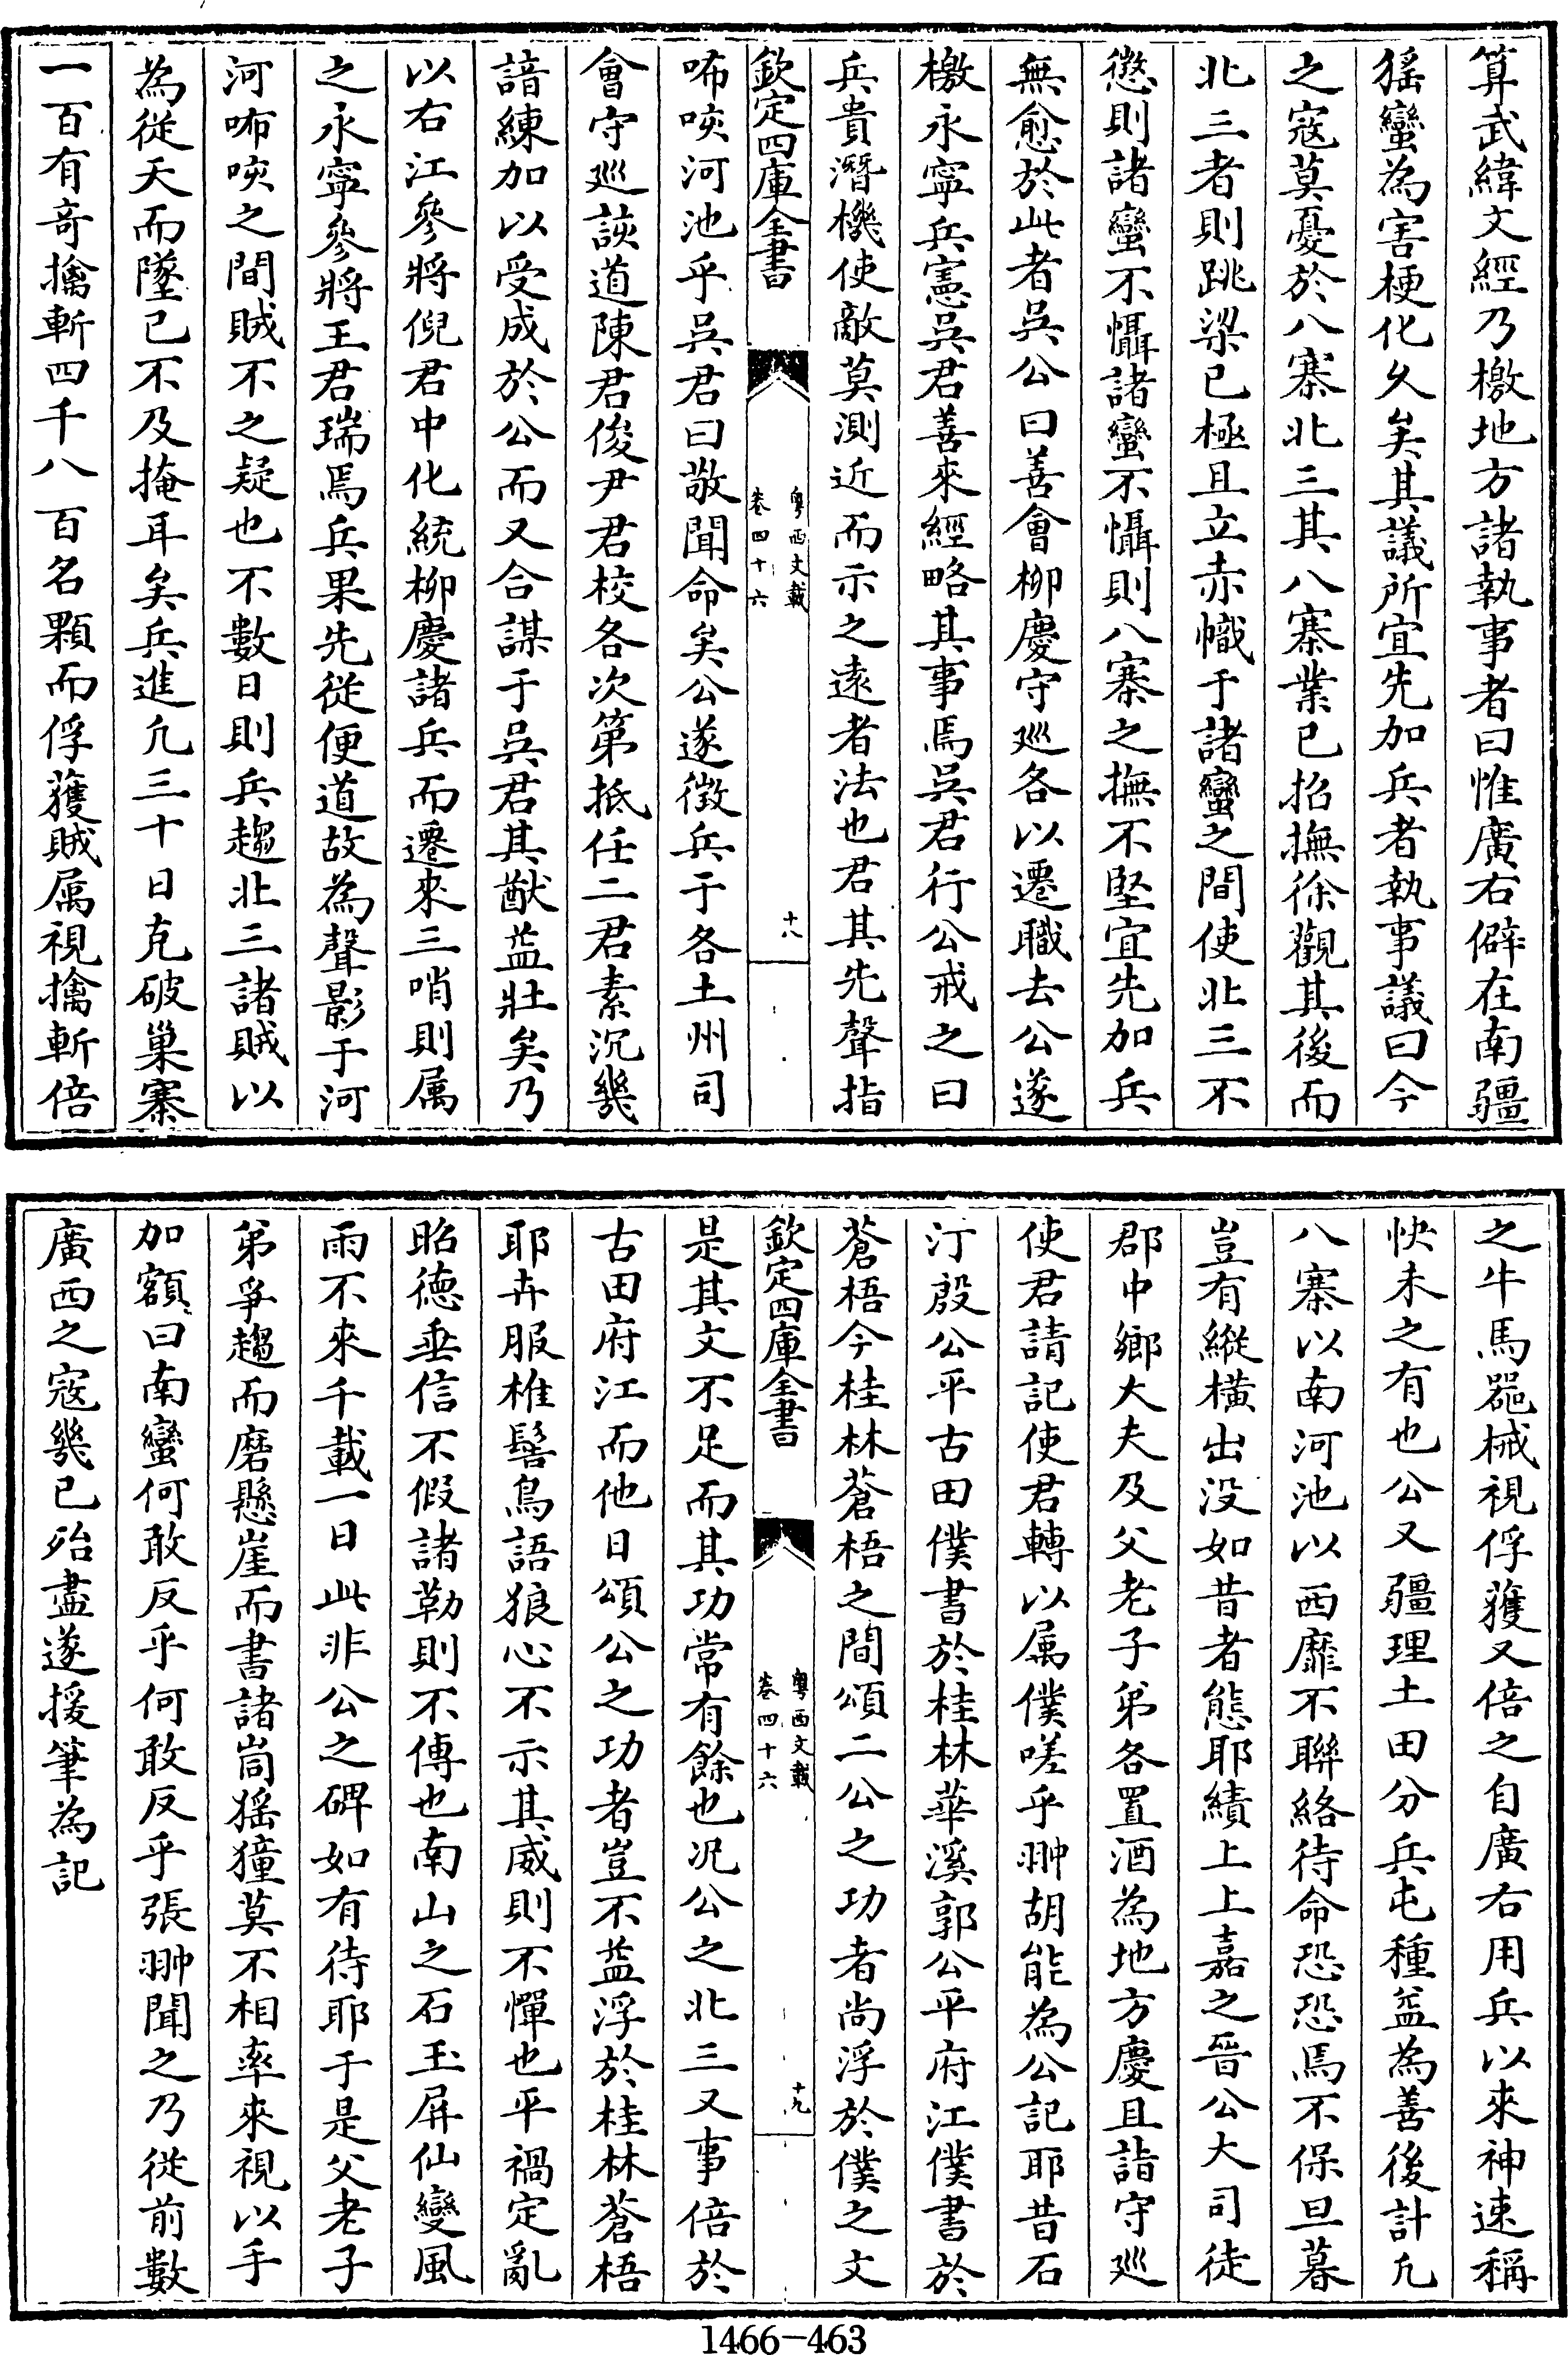 算武緯文經乃檄地方諸執事者曰惟廣右僻在南疆
猺蠻為害梗化久矣其議所宜先加兵者執事議曰今
之寇莫憂於八寨北三其八寨業已招撫徐觀其後而
北三者則跳梁已極且立赤幟于諸蠻之間使北三不
懲則諸蠻不懾諸蠻不懾則八寨之撫不堅宜先加兵
無愈於此者吳公曰善會柳慶守巡各以遷職去公遂
檄永寧兵憲吳君善來經略其事焉吳君行公戒之曰
兵貴潛機使敵莫測近而示之逺者法也君其先聲指
欽定四庫全書
粤西文載
卷四十六
十八
咘咳河池乎吳君曰敬聞命矣公遂徵兵于各土州司
會守巡該道陳君俊尹君校各次第抵任二君素沉幾
諳練加以受成於公而又合謀于吳君其猷益壯矣乃
以右江參將倪君中化統柳慶諸兵而遷來三哨則属
之永寧參將王君瑞焉兵果先從便道故為聲影于河
河咘咳之間賊不之疑也不數日則兵趨北三諸賊以
為從天而墜已不及掩耳矣兵進凢三十日克破巢寨
一百有竒擒斬四千八百名顆而俘獲賊属視擒斬倍
之牛馬噐械視俘獲又倍之自廣右用兵以來神速稱
快未之有也公又疆理土田分兵屯種益為善後計凢
八寨以南河池以西靡不聯絡待命恐恐焉不保旦暮
豈有縱橫出没如昔者態耶績上上嘉之晉公大司徒
郡中鄉大夫及父老子弟各置酒為地方慶且詣守巡
使君請記使君轉以属僕嗟乎翀胡能為公記耶昔石
汀殷公平古田僕書於桂林華溪郭公平府江僕書於
蒼梧今桂林蒼梧之間頌二公之功者尚浮於僕之文
欽定四庫全書
粤西文載
卷四十六
十九
是其文不足而其功常有餘也况公之北三又事倍於
古田府江而他日頌公之功者豈不益浮於桂林蒼梧
耶卉服椎髻鳥語狼心不示其威則不憚也平禍定亂
昭德垂信不假諸勒則不傳也南山之石玉屏仙變風
雨不來千載一日此非公之碑如有待耶于是父老子
弟爭趨而磨懸崖而書諸峝猺獞莫不相率來視以手
加額曰南蠻何敢反乎何敢反乎張翀聞之乃從前數
廣西之寇幾已殆盡遂援筆為記
1466-463